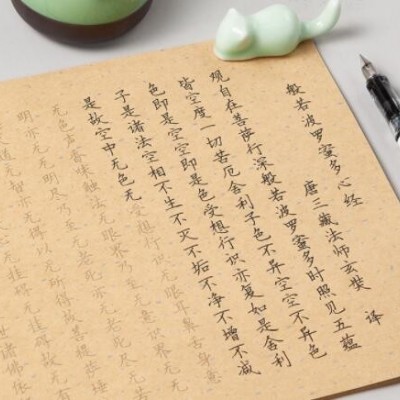 般若波罗蜜多心经
唐三藏法师玄奘 译
观自在菩萨行深般若波罗蜜多时照见五蕴
皆空度一切苦厄舍利子色不异空空不异色
色即是空空即是色受想行识亦复如是舍利
子是诸法空相不生不灭不垢不净不增不减
是故空中无色无受想行识无眼耳鼻舌身意
无色声香味触法无眼界乃至无意识界无无
明亦无无明尽乃至无老死亦无老死尽无苦
道无智亦无得以无所得故菩提萨埵
无挂碍无挂碍故
诸佛依